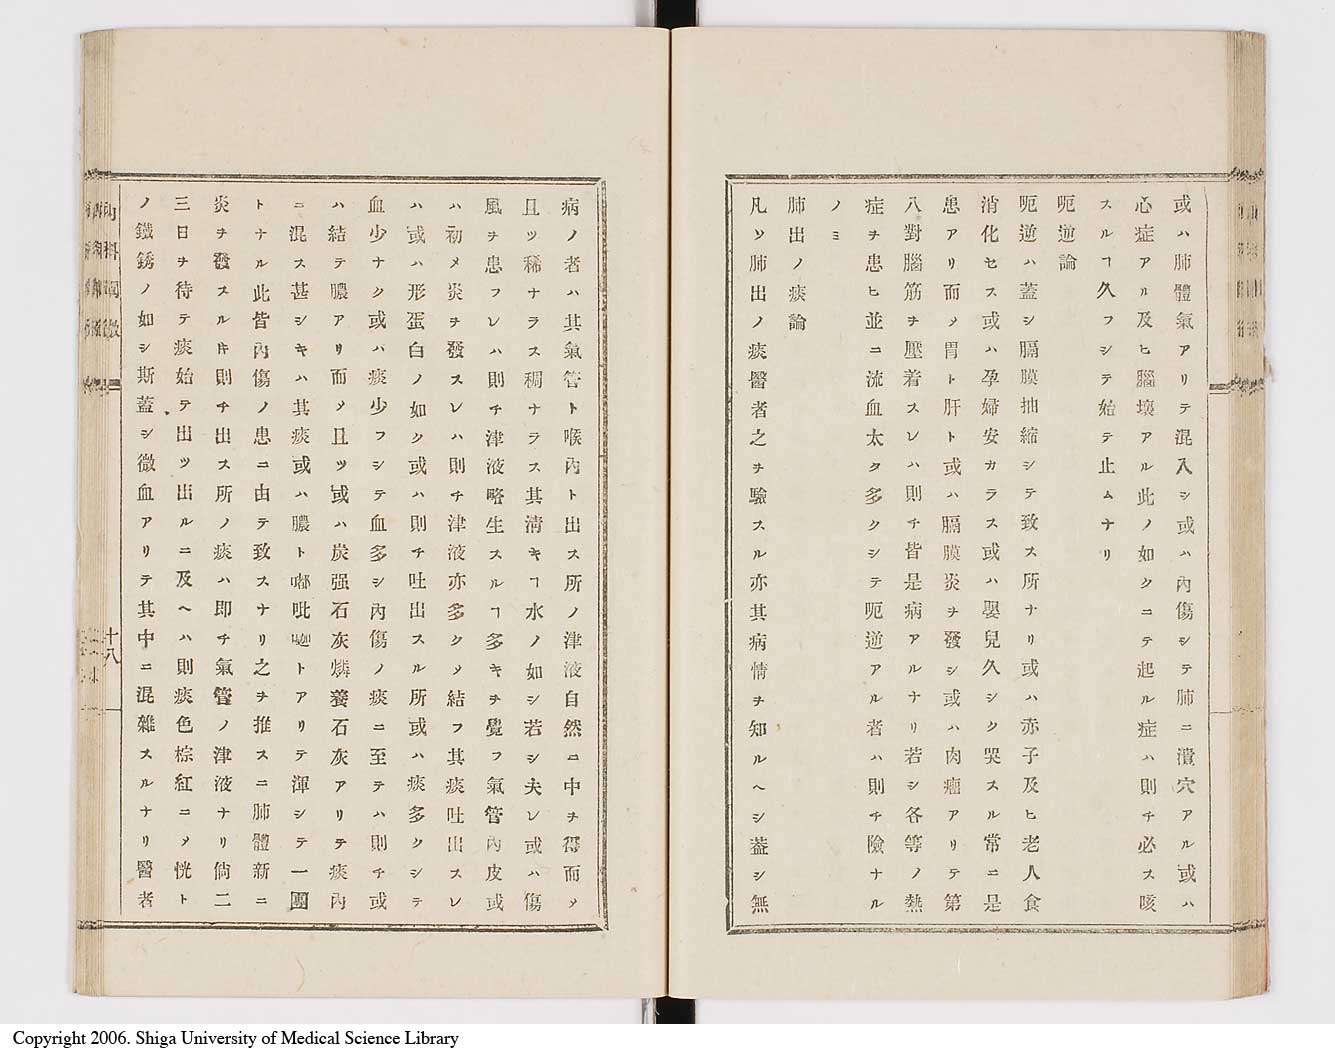 或ハ肺體氣アリテ混入シ或ハ內傷シテ肺ニ潰穴アル或ハ
心症アル及ヒ腦壞アル此ノ如クニテ起ル症ハ則チ必ス咳
スルヿ久フシテ始テ止ムナリ
呃逆論
呃逆ハ蓋シ膈膜抽縮シテ致ス所ナリ或ハ赤子及ヒ老人食
消化セス或ハ孕婦安カラス或ハ嬰兒久シク哭スル常ニ是
患アリ而メ胃ト肝ト或ハ膈膜炎ヲ發シ或ハ肉瘤アリテ第
八對腦筋ヲ壓着スレハ則チ皆是病アルナリ若シ各等ノ熱
症ヲ患ヒ並ニ流血太タ多クシテ呃逆アル者ハ則チ險ナル
ノミ
肺出ノ痰論
凡ソ肺出ノ痰醫者之ヲ驗スル亦其病情ヲ知ルヘシ蓋シ無
病ノ者ハ其氣管ト喉內ト出ス所ノ津液自然ニ中ヲ得而メ
且ツ稀ナラス稠ナラス其淸キヿ水ノ如シ若シ夫レ或ハ傷
風ヲ患フレハ則チ津液略生スルヿ多キヲ覺フ氣管內皮或
ハ初メ炎ヲ發スレハ則チ津液亦多クメ結フ其痰吐出スレ
ハ或ハ形蛋白ノ如ク或ハ則チ吐出スル所或ハ痰多クシテ
血少ナク或ハ痰少フシテ血多シ內傷ノ痰ニ至テハ則チ或
ハ結テ膿アリ而メ且ツ或ハ炭强石灰燐養石灰アリテ痰內
ニ混ス甚シキハ其痰或ハ膿ト嘟吡𠵽トアリテ渾シテ一團
トナル此皆內傷ノ患ニ由テ致スナリ之ヲ推スニ肺體新ニ
炎ヲ發スル𪜈則チ出ス所ノ痰ハ即チ氣管ノ津液ナリ倘二
三日ヲ待テ痰始テ出ツ出ルニ及ヘハ則痰色棕紅ニメ恍ト
ノ鐵銹ノ如シ斯蓋シ微血アリテ其中ニ混雜スルナリ醫者
十八